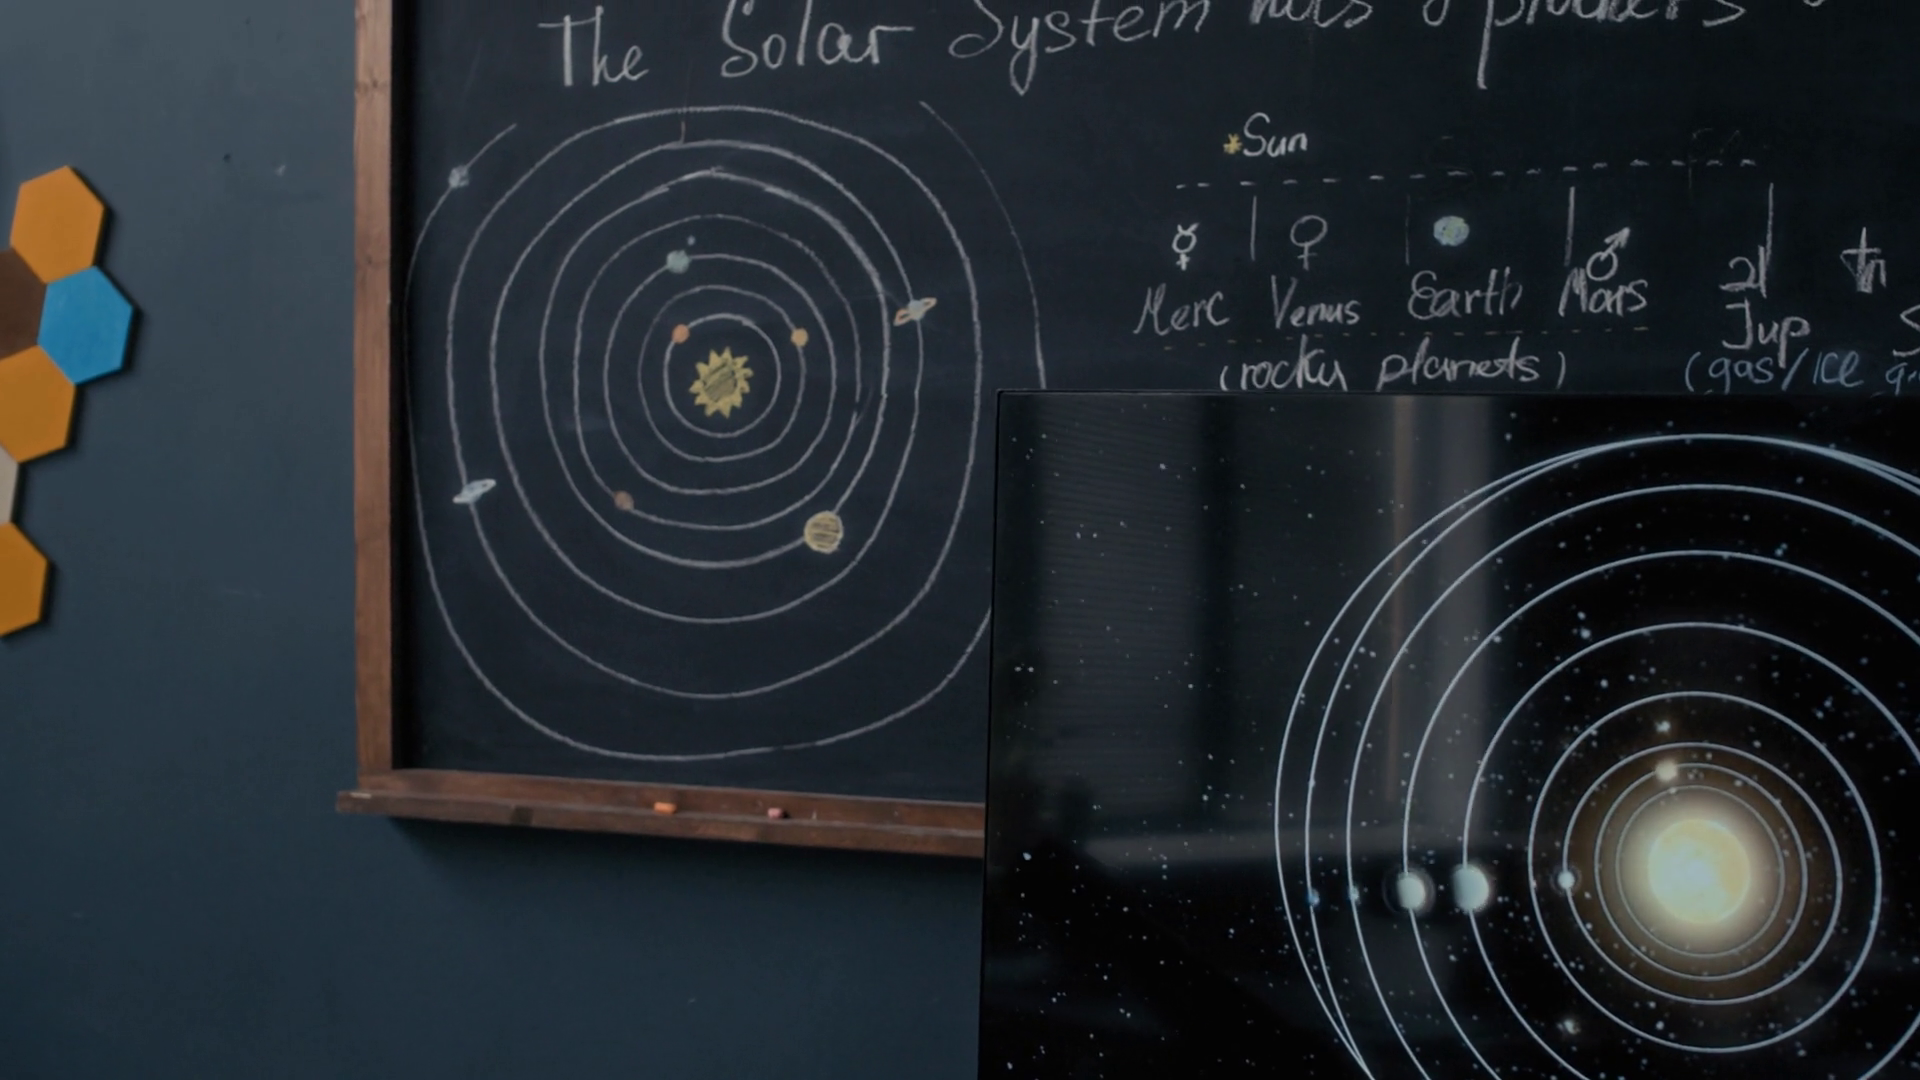 The Solar System has 8 planets
Sun
Merc Venus Earth Mars Jup
(rocky planets) (gas/ice